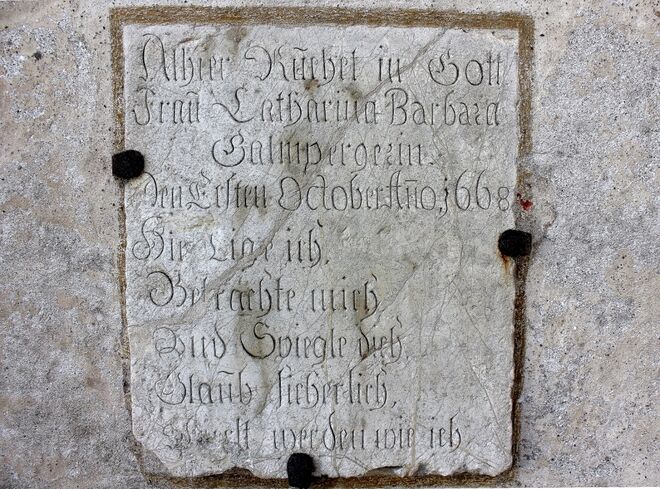 Alhier Ruehet in Gott
Frau Catharina Barbara
Galmpergerin.
Den Ersten October Año, 1668
Hie Lige ich,
Betrachte mich,
Und Spiegle dich,
Glaub sicherlich,
werden wie ich